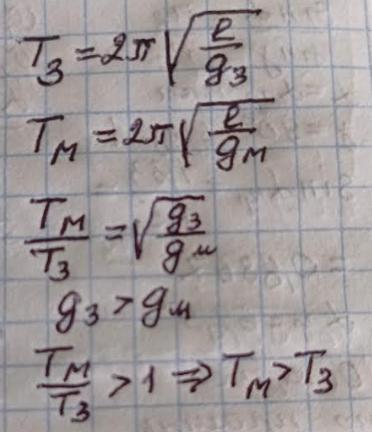 T₃ = 2π √(l/g₃)
Tм = 2π √(l/gм)
Tм/T₃ = √(g₃/gм)
g₃ > gм
Tм/T₃ > 1 ⇒ Tм > T₃